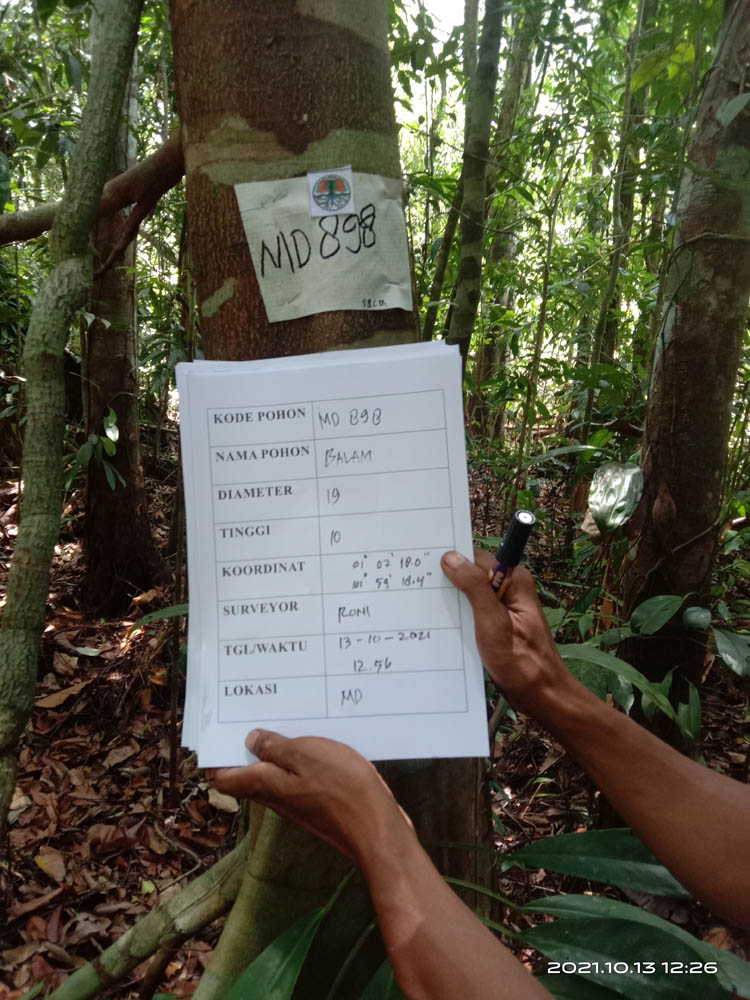 MD 898
KODE POHON MD 898
NAMA POHON BALAM
DIAMETER 19
TINGGI 10
KOORDINAT 01° 02' 18.0"
101° 59' 18.4"
SURVEYOR RONI
TGL/WAKTU 13-10-2021
12.56
LOKASI MD
2021.10.13 12:26